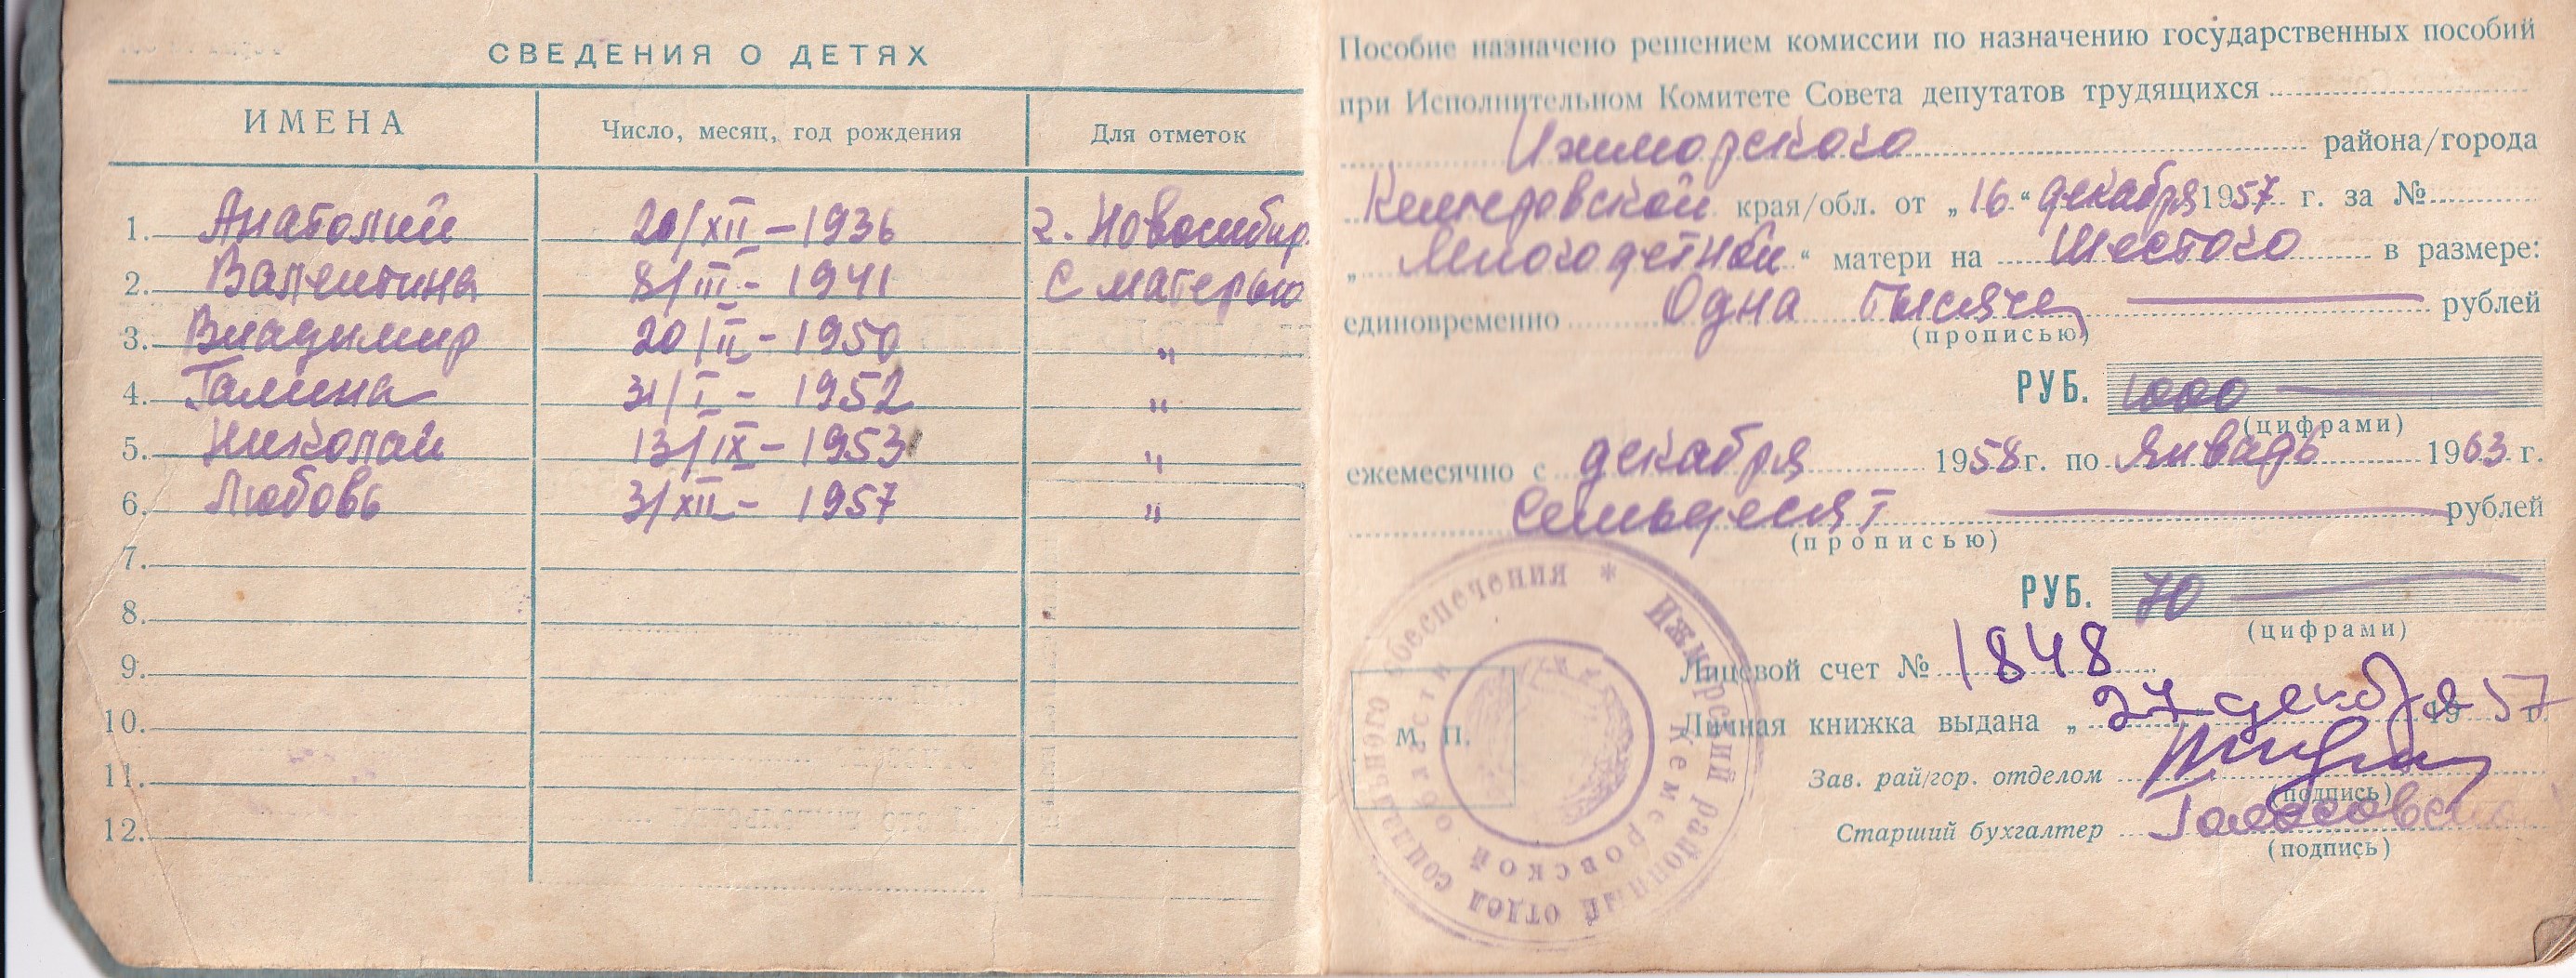 СВЕДЕНИЯ О ДЕТЯХ
ИМЕНА Число, месяц, год рождения Для отметок
1. Анатолий 20/XII – 1936 г. Новосибир.
2. Валентина 8/III – 1941 С матерью
3. Владимир 20/II – 1950 "
4. Галина 31/I – 1952 "
5. Николай 13/IX – 1953 "
6. Любовь 3/XII – 1957 "
7.
8.
9.
10.
11.
12.
Пособие назначено решением комиссии по назначению государственных пособий
при Исполнительном Комитете Совета депутатов трудящихся
Ижморского района/города
Кемеровской края/обл. от „16“ декабря 1957 г. за №
„Многодетной“ матери на шестого в размере:
единовременно Одна тысяча рублей
(прописью)
РУБ. 1000
(цифрами)
ежемесячно с декабря 1958 г. по январь 1963 г.
Семьдесят рублей
(прописью)
РУБ. 70
(цифрами)
Лицевой счет № 1848
Личная книжка выдана „27 декабр 1957 г.
М. П.
Зав. рай/гор. отделом
(подпись)
Старший бухгалтер
(подпись)
Ижморский районный отдел социального обеспечения *
Кемеровской области